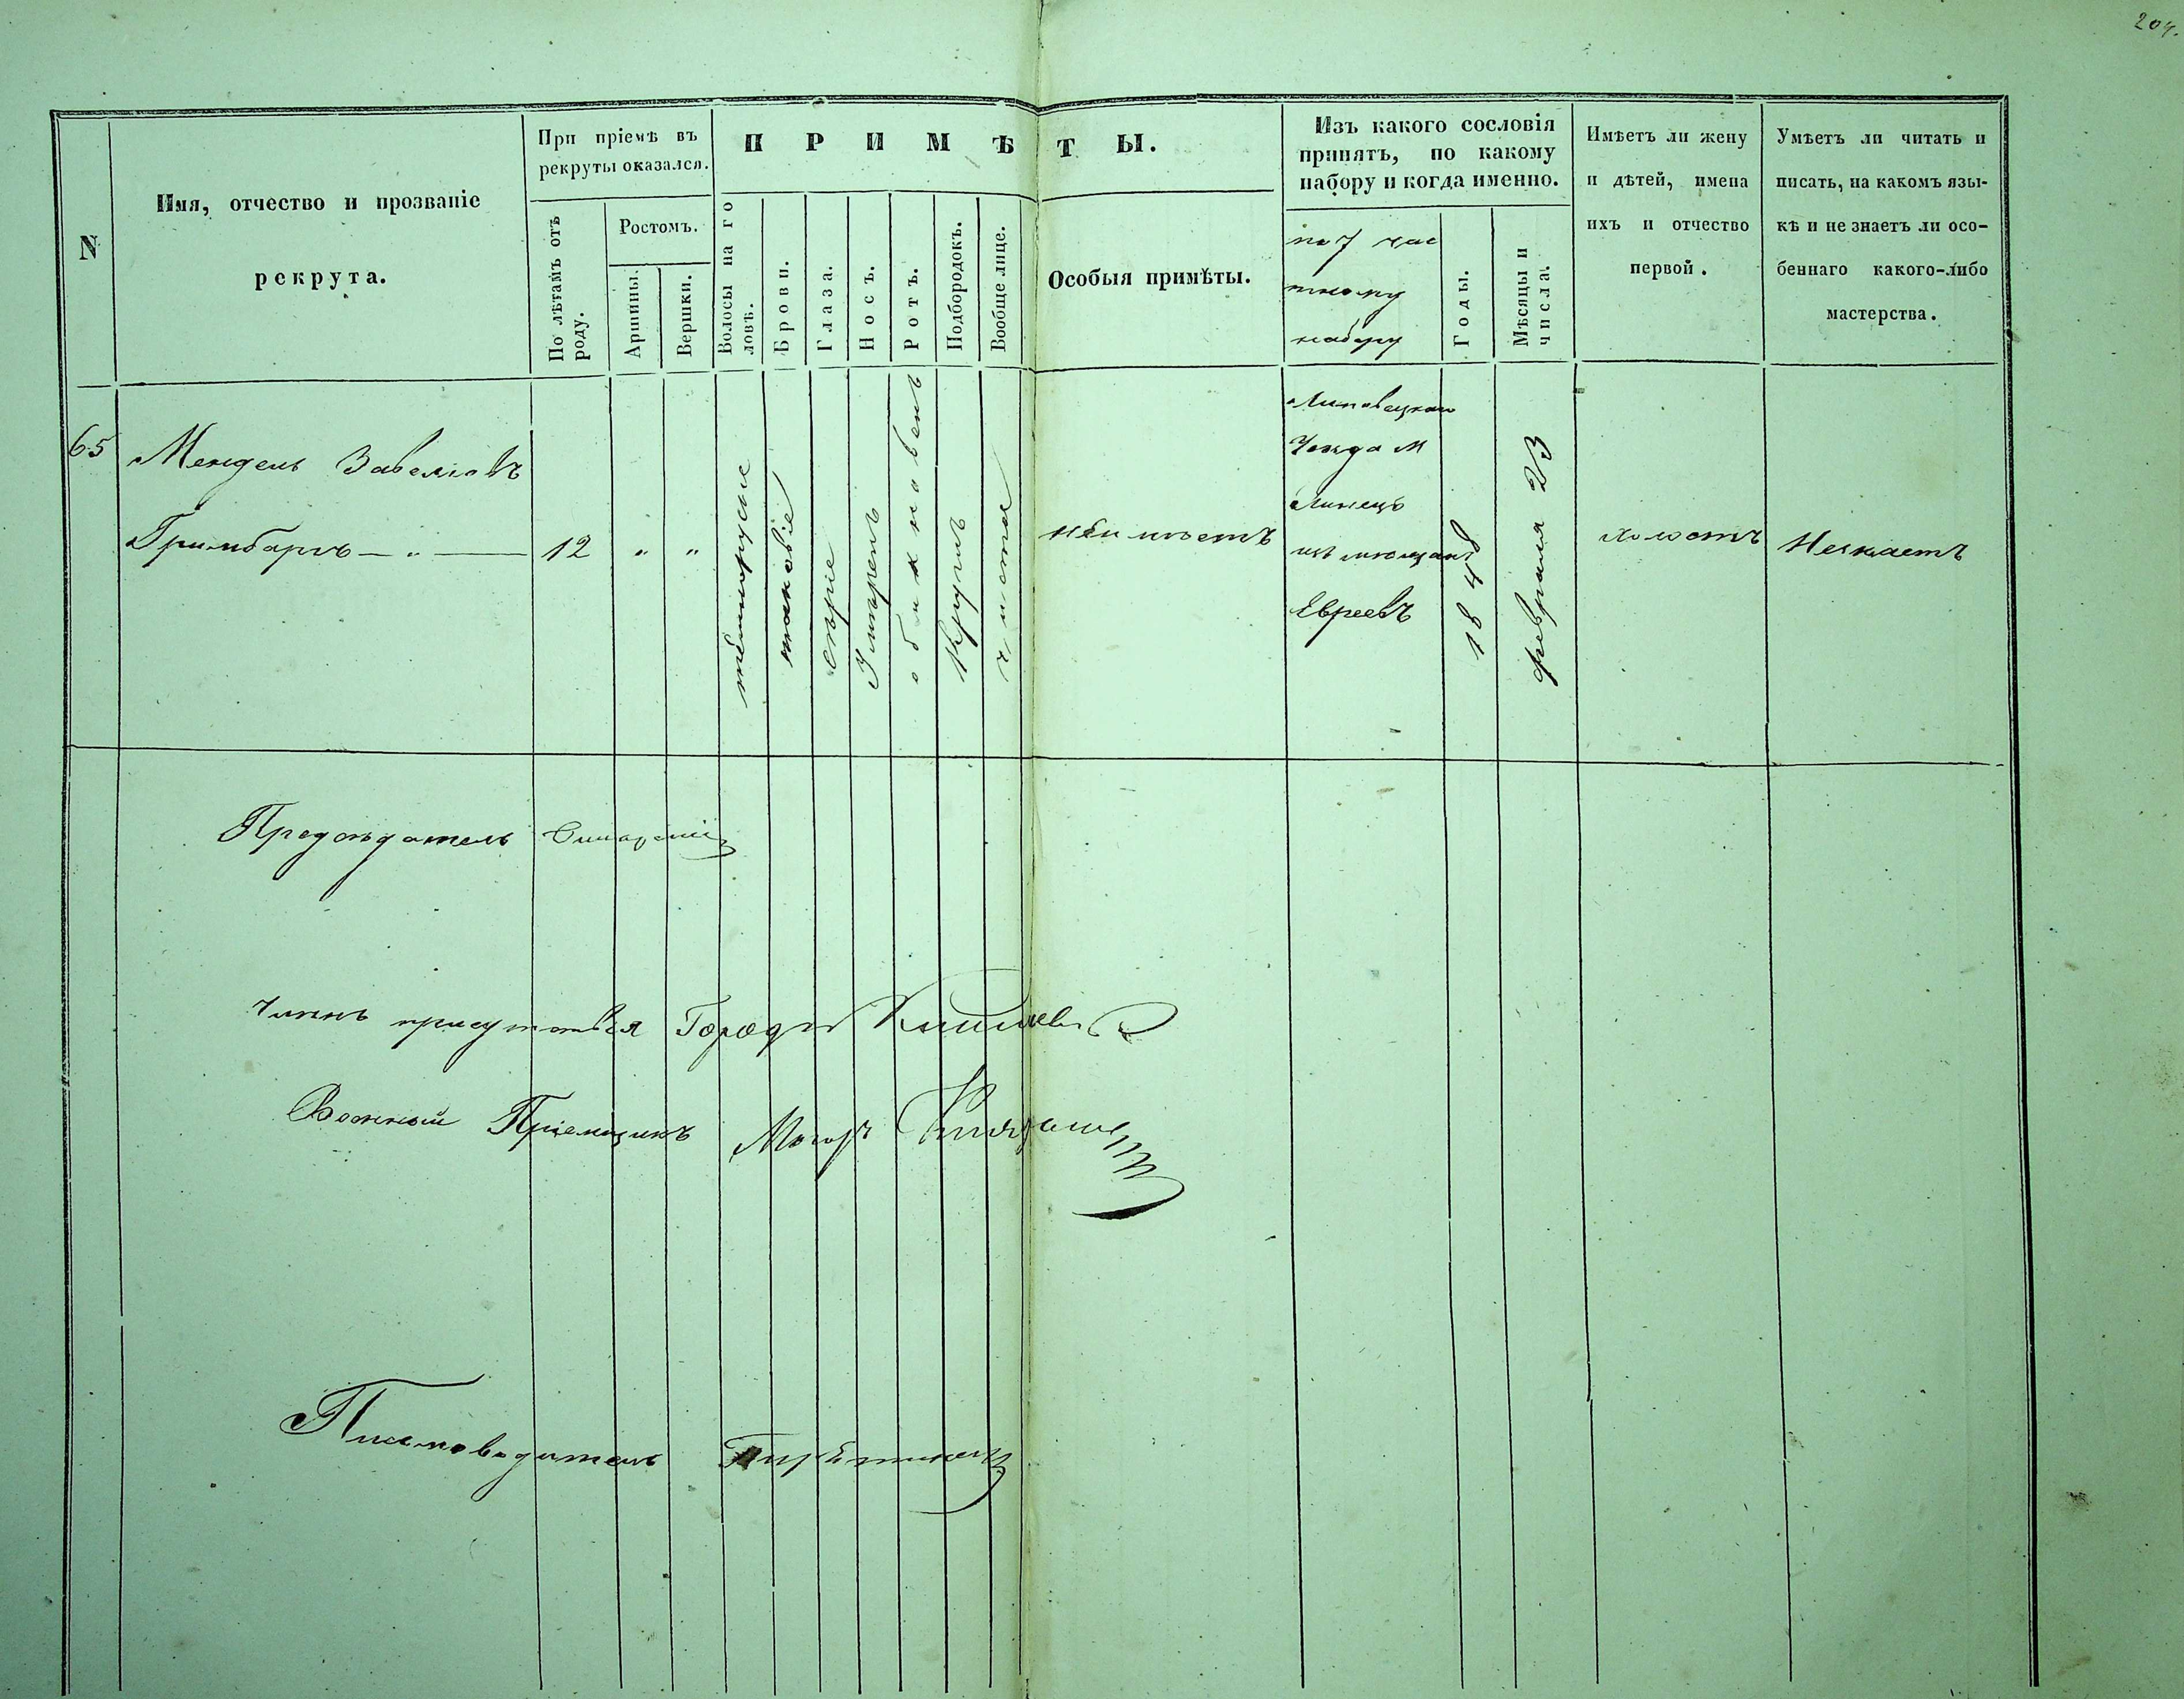 204.
N
Имя, отчество и прозваніе
рекрута.
При пріемѣ въ
рекруты оказался.
По лѣтамъ отъ
роду.
Ростомъ.
Аршины.
Вершки.
П Р И М Ѣ Т Ы.
Волосы на го
ловѣ.
Брови.
Глаза.
Носъ.
Ротъ.
Подбородокъ.
Вообще лице.
Особыя примѣты.
Изъ какого сословія
принятъ, по какому
набору и когда именно.
по 7 час
тному
набору
Годы.
Мѣсяцы и
числа.
Имѣетъ ли жену
и дѣтей, имена
ихъ и отчество
первой.
Умѣетъ ли читать и
писать, на какомъ язы-
кѣ и не знаетъ ли осо-
беннаго какого-либо
мастерства.
65
Мендель Завеліовъ
Гримбармъ — „ —
12
„
„
тѣмнорусіе
таковіе
сѣріе
Умѣренъ
обикновенъ
Кругмъ
чисто
неимѣетъ
Липовецкаго
Уезда м
Линецъ
изъ мѣщанъ
Евреевъ
1848
февраля 23
холостъ
Незнаетъ
Предсѣдатель
Членъ присутствія Городн
Военный Пріемщикъ Маіоръ
Писмоводитель